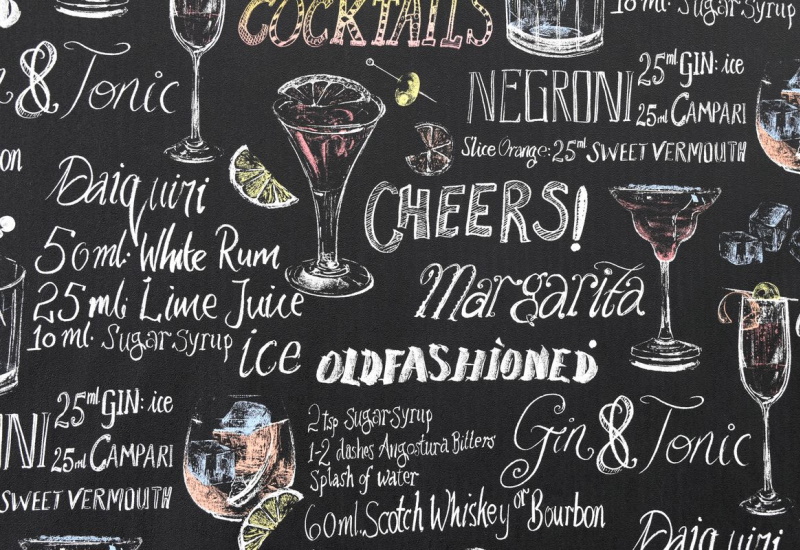 COCKTAILS
10 ml. Sugar Syrup
& Tonic
NEGRONI
25ml GIN: ice
25ml CAMPARI
Slice Orange: 25ml SWEET VERMOUTH
Daiquiri
50 ml. White Rum
25 ml. Lime Juice
10 ml. Sugar Syrup
ice
CHEERS!
Margarita
OLDFASHIONED
2 tsp Sugar Syrup
1-2 dashes Angostura Bitters
Splash of water
60ml. Scotch Whiskey or Bourbon
25ml GIN: ice
25ml CAMPARI
SWEET VERMOUTH
Gin & Tonic
Daiquiri